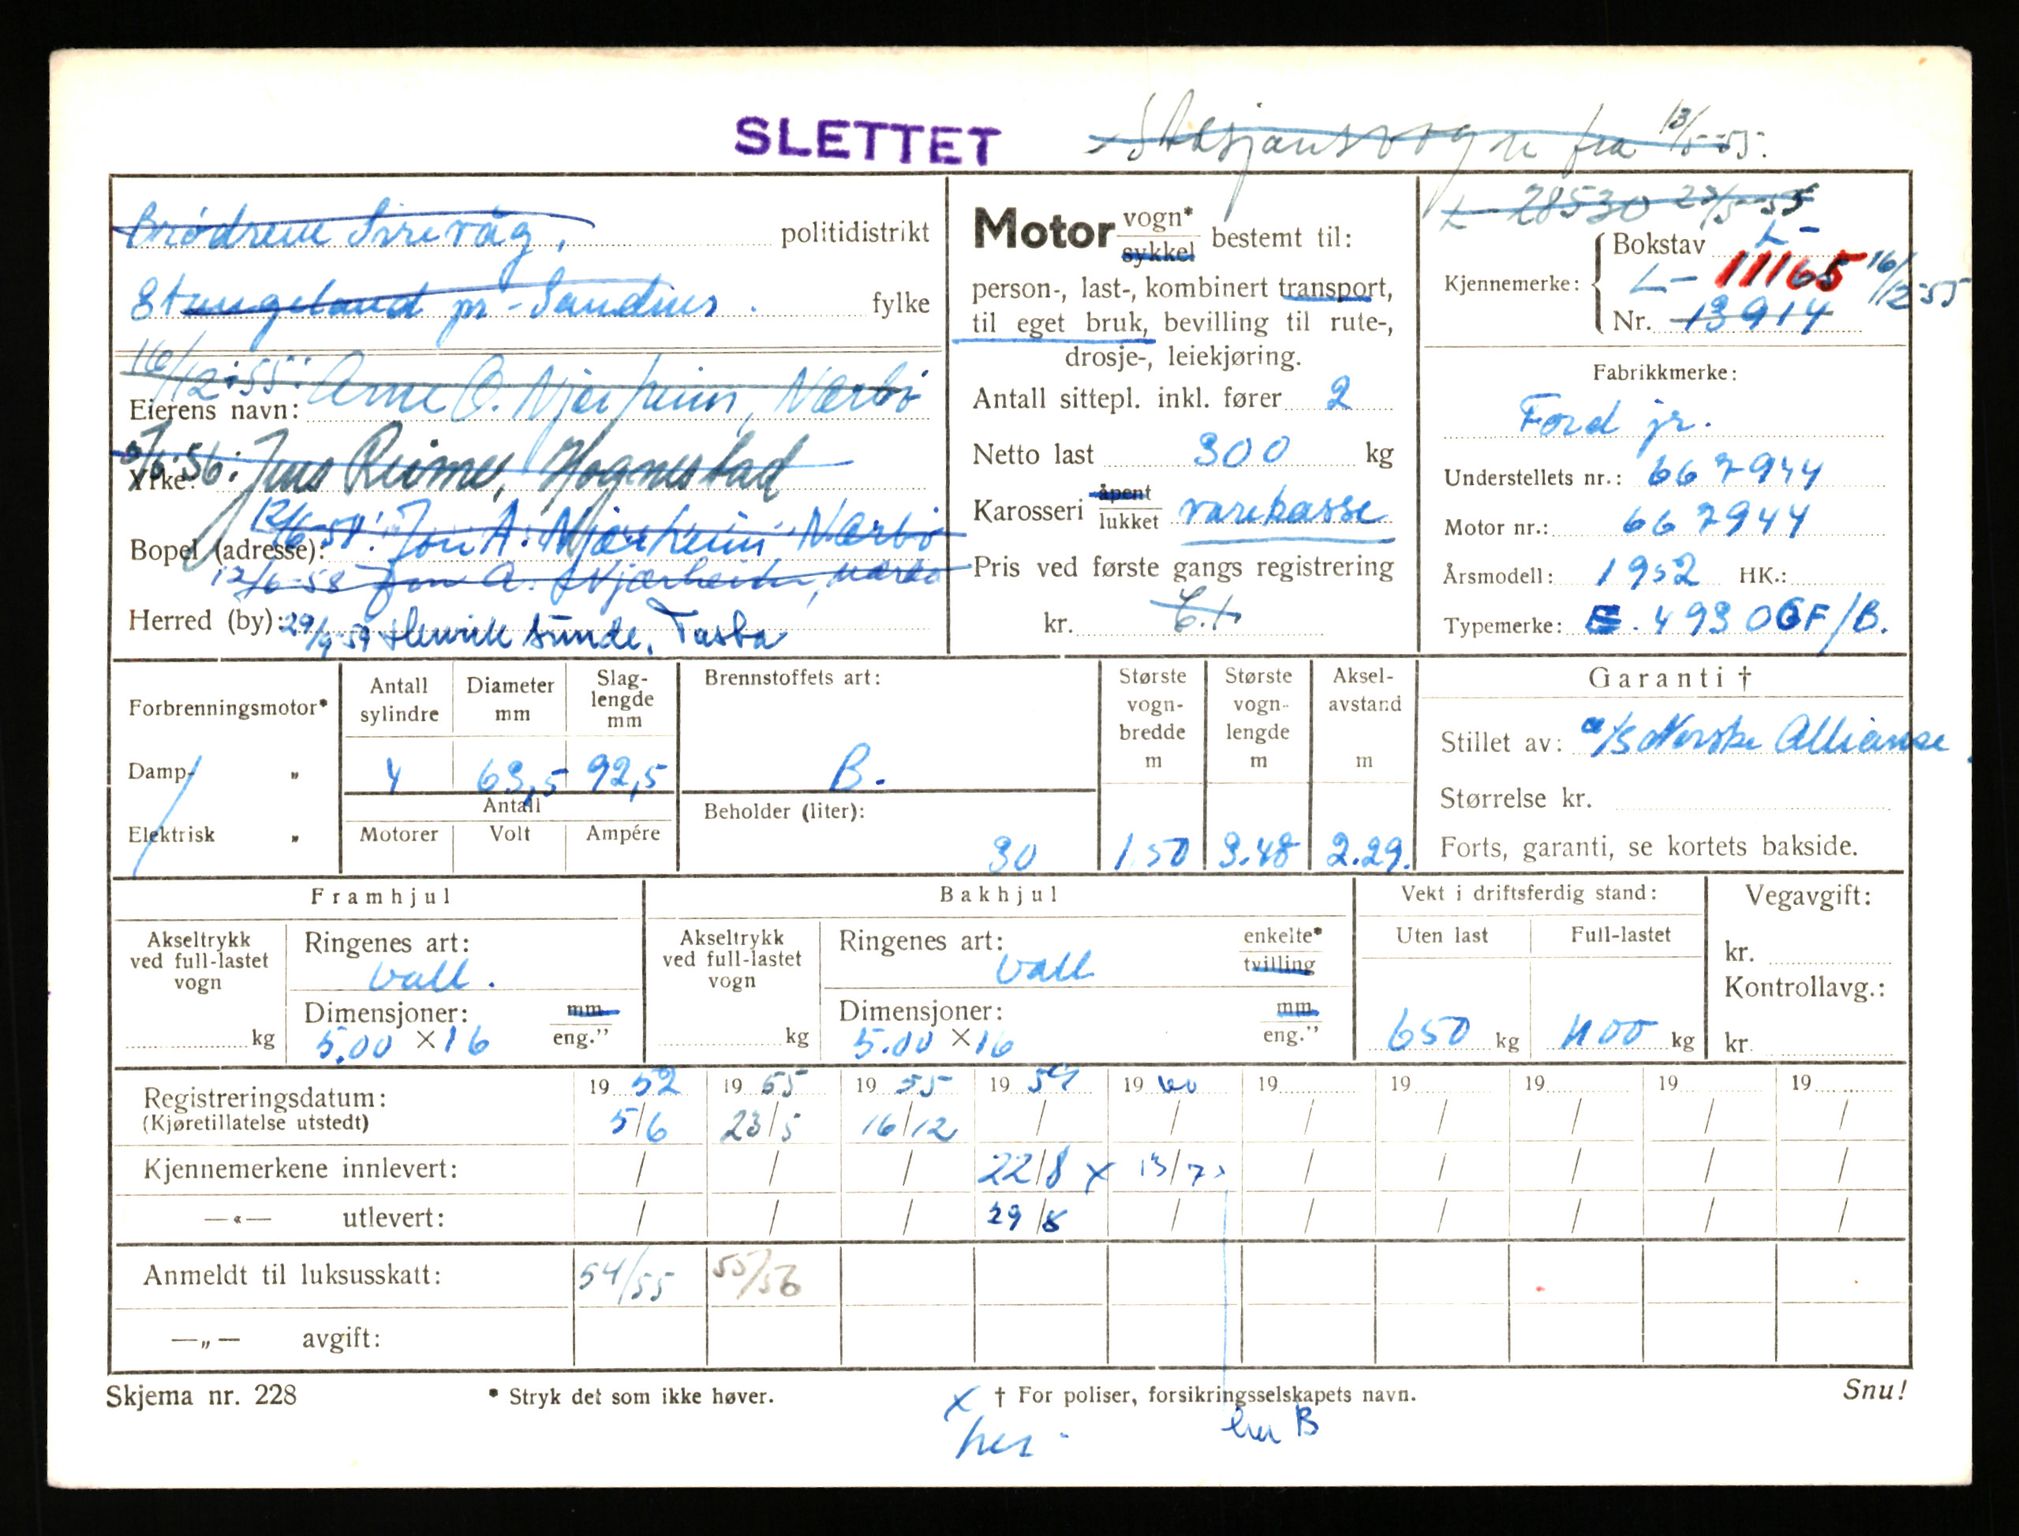 SLETTET Stasjonsvogn fra 13/5-55.
Brødrene Sirevåg, politidistrikt
Stangeland pr. Sandnes. fylke
16/12-55: Arne O. Njærheim, Nærbø
Eierens navn:
Jens Reime, Hognestad
Yrke:
12/6-58: Jon A. Njærheim, Nærbø
Bopel (adresse):
12/6-58 Jon A. Njærheim, Nærbø
Herred (by): 29/9-59 Henrik Sunde, Tasta
Motor vogn* sykkel bestemt til:
person-, last-, kombinert transport,
til eget bruk, bevilling til rute-,
drosje-, leiekjøring.
Antall sittepl. inkl. fører 2
Netto last 300 kg
Karosseri åpent lukket varekasse
Pris ved første gangs registrering
kr.
L-28530 23/5-55
Bokstav L-
Kjennemerke: L-11165 16/12-55
Nr. 13914
Fabrikkmerke:
Ford jr.
Understellets nr.: 667944
Motor nr.: 667944
Årsmodell: 1952 HK.:
Typemerke: E. 493 OGF/B.
Forbrenningsmotor*
Damp- „
Elektrisk „
Antall sylindre
Diameter mm
Slag-lengde mm
4 63,5 92,5
Antall
Motorer Volt Ampére
Brennstoffets art:
B.
Beholder (liter):
30
Største vogn-bredde m
1.50
Største vogn-lengde m
3.48
Aksel-avstand m
2.29.
Garanti †
Stillet av: a/s Norske Allianse.
Størrelse kr.
Forts, garanti, se kortets bakside.
Framhjul
Akseltrykk ved full-lastet vogn
kg
Ringenes art:
Vall.
Dimensjoner: mm
5.00 x 16 eng."
Bakhjul
Akseltrykk ved full-lastet vogn
kg
Ringenes art: enkelte*
Vall tvilling
Dimensjoner: mm
5.00 x 16 eng."
Vekt i driftsferdig stand:
Uten last Full-lastet
650 kg 1100 kg
Vegavgift:
kr.
Kontrollavg.:
kr.
Registreringsdatum: 19 52 19 55 19 55 19 59 19 60 19 19 19 19 19
(Kjøretillatelse utstedt) 5/6 23/5 16/12 / / / / / / /
Kjennemerkene innlevert: / / / 22/8 x 13/7 / / / / /
—«— utlevert: / / / 29/8 / / / / / /
Anmeldt til luksusskatt: 54/55 55/56
—„— avgift:
Skjema nr. 228 * Stryk det som ikke høver. x † For poliser, forsikringsselskapets navn. Snu!
her B
hes